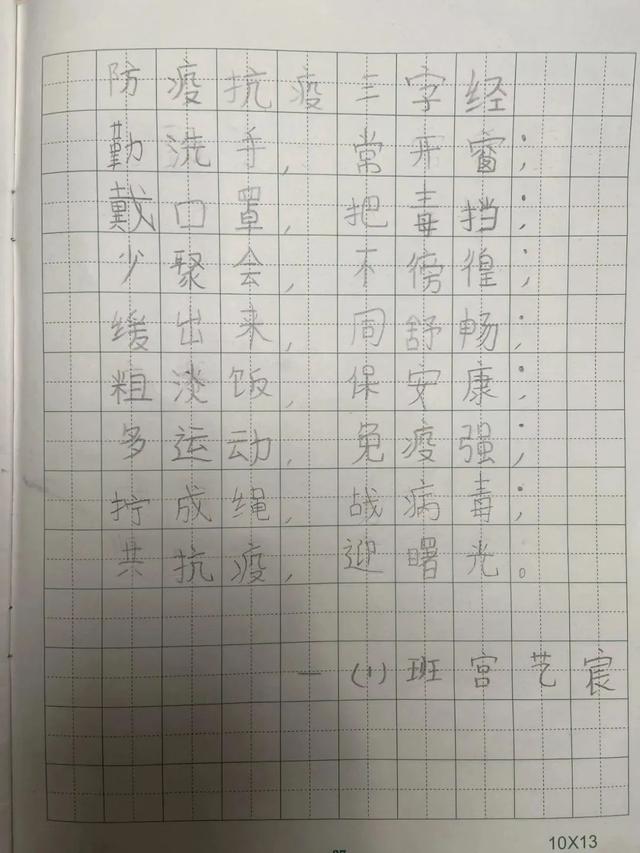 防疫抗疫三字经
勤洗手，常开窗；
戴口罩，把毒挡；
少聚会，不徬徨；
缓出来，周舒畅；
粗淡饭，保安康；
多运动，免疫强；
拧成绳，战病毒；
共抗疫，迎曙光。
一(1)班宫艺宸
10X13